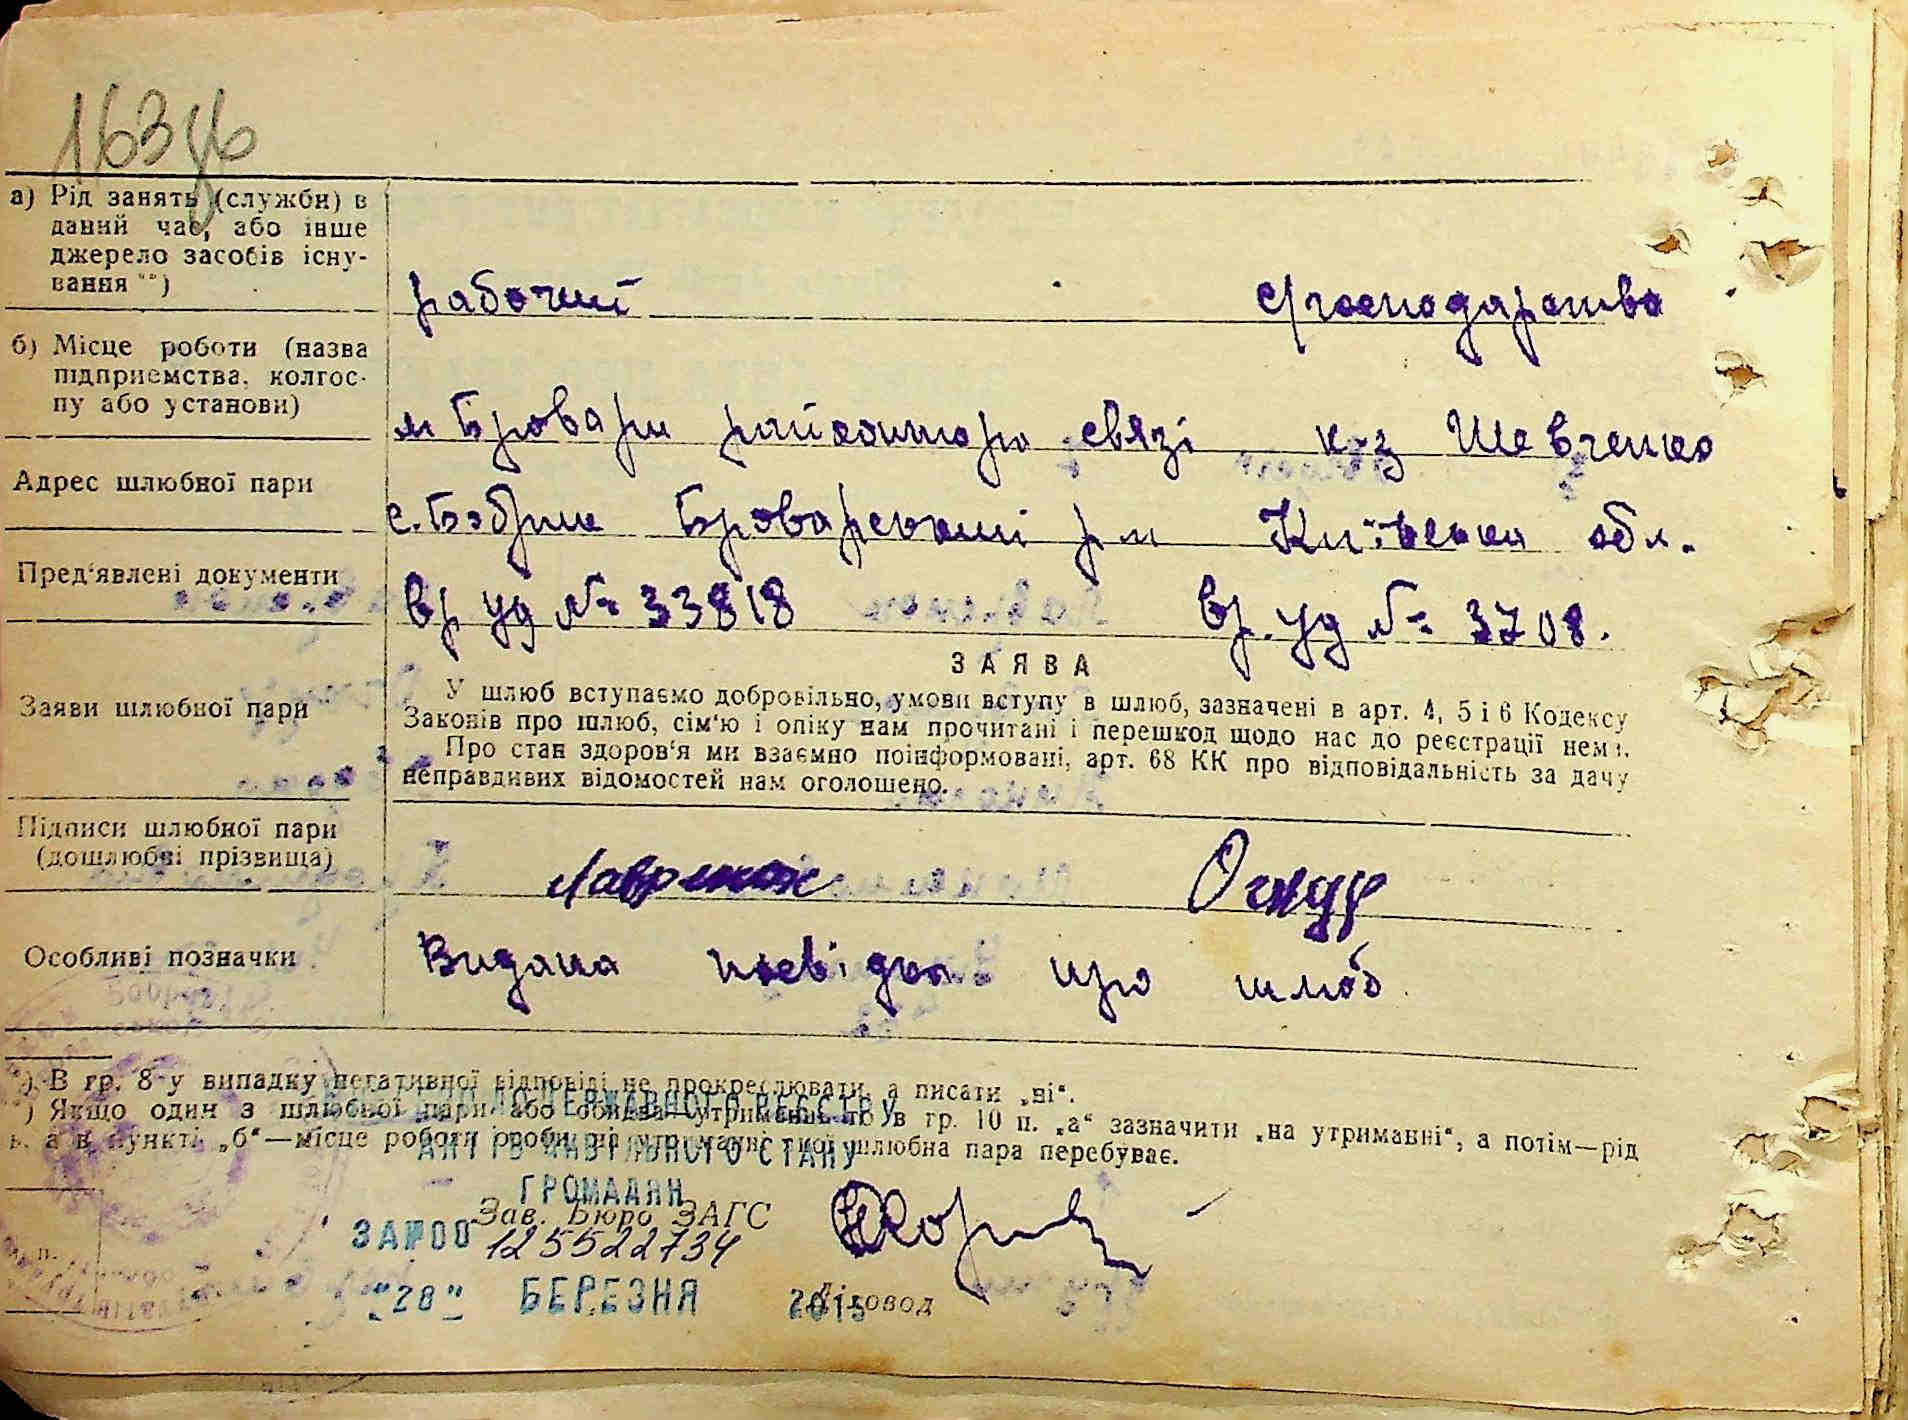 163
а) Рід занять (служби) в
даний час, або інше
джерело засобів існу-
вання **)
рабочий с/господарства
б) Місце роботи (назва
підприємства, колгос-
пу або установи)
м Бровари райконтора связі к-з Шевченко
Адрес шлюбної пари
с. Бобрик Броварський р н Київська обл.
Пред'явлені документи
вр уд № 33818 вр. уд № 3708.
ЗАЯВА
Заяви шлюбної пари
У шлюб вступаємо добровільно, умови вступу в шлюб, зазначені в арт. 4, 5 і 6 Кодексу
Законів про шлюб, сім'ю і опіку нам прочитані і перешкод щодо нас до реєстрації нема.
Про стан здоров'я ми взаємно поінформовані, арт. 68 КК про відповідальність за дачу
неправдивих відомостей нам оголошено.
Підписи шлюбної пари
(дошлюбні прізвища)
Особливі позначки
Видана посвідка про шлюб
*) В гр. 8 у випадку негативної відповіді не прокреслювати, а писати „ні“.
**) Якщо один з шлюбної пари або обидва утриманці то в гр. 10 п. „а“ зазначити „на утриманні“, а потім—рід
а в пункті „б“—місце роботи особи, на утриманні якої шлюбна пара перебуває.
ДО ДЕРЖАВНОГО РЕЄСТРУ
АКТІВ ЦИВІЛЬНОГО СТАНУ
ГРОМАДЯН
Зав. Бюро ЗАГС
ЗА №00 125522734
"28" БЕРЕЗНЯ 2015
Діловод